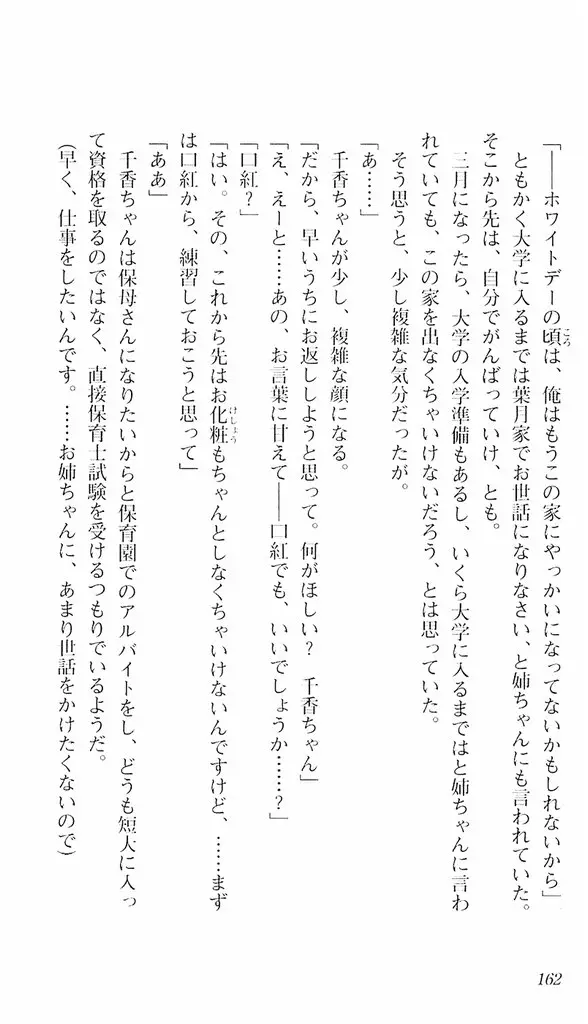 「――ホワイトデーの頃は、俺はもうこの家にやっかいになってないかもしれないから」
ともかく大学に入るまでは葉月家でお世話になりなさい、と姉ちゃんにも言われていた。
そこから先は、自分でがんばっていけ、とも。
三月になったら、大学の入学準備もあるし、いくら大学に入るまではと姉ちゃんに言わ
れていても、この家を出なくちゃいけないだろう、とは思っていた。
そう思うと、少し複雑な気分だったが。
「あ……」
千香ちゃんが少し、複雑な顔になる。
「だから、早いうちにお返ししようと思って。何がほしい？　千香ちゃん」
「え、えーと……あの、お言葉に甘えて――口紅でも、いいでしょうか……？」
「口紅？」
「はい。その、これから先はお化粧もちゃんとしなくちゃいけないんですけど、……まず
は口紅から、練習しておこうと思って」
「ああ」
千香ちゃんは保母さんになりたいからと保育園でのアルバイトをし、どうも短大に入っ
て資格を取るのではなく、直接保育士試験を受けるつもりでいるようだ。
(早く、仕事をしたいんです。……お姉ちゃんに、あまり世話をかけたくないので)
ころ
けしょう
162